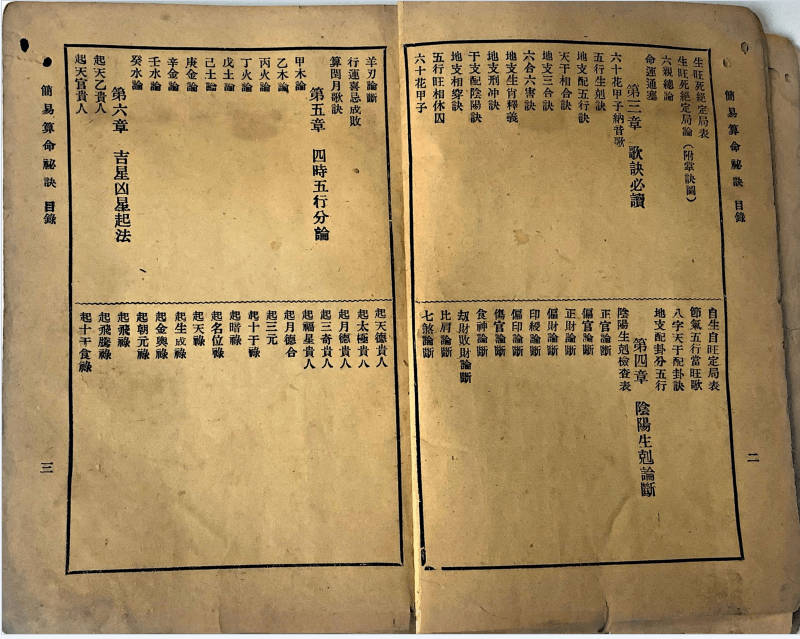 簡易算命祕訣 目錄
二
生旺死絕定局表
生旺死絕定局論(附掌訣圖)
六親總論
命運通塞
第三章 歌訣必讀
六十花甲子納音歌
五行生剋訣
地支配五行訣
天干相合訣
地支三合訣
六合六害訣
地支生肖釋義
地支刑冲訣
干支配陰陽訣
地支相穿訣
五行旺相休囚
六十花甲子
自生自旺定局表
節氣五行當旺歌
八字天干配卦訣
地支配卦分五行
第四章 陰陽生剋論斷
陰陽生剋檢查表
正官論斷
偏官論斷
正財論斷
偏財論斷
印綬論斷
偏印論斷
傷官論斷
食神論斷
劫財敗財論斷
比肩論斷
七煞論斷
羊刃論斷
行運喜忌成敗
算閏月歌訣
第五章 四時五行分論
甲木論
乙木論
丙火論
丁火論
戊土論
己土論
庚金論
辛金論
壬水論
癸水論
第六章 吉星凶星起法
起天乙貴人
起天官貴人
起天德貴人
起太極貴人
起月德貴人
起三奇貴人
起福星貴人
起月德合
起三元
起十干祿
起暗祿
起名位祿
起天祿
起生成祿
起金輿祿
起朝元祿
起飛祿
起飛騰祿
起十干食祿
簡易算命祕訣 目錄
三